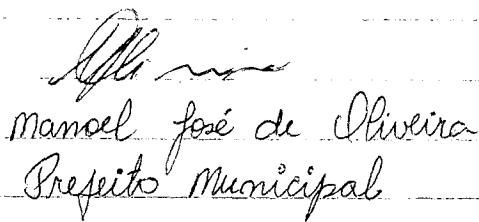 Manoel José de Oliveira
Prefeito Municipal